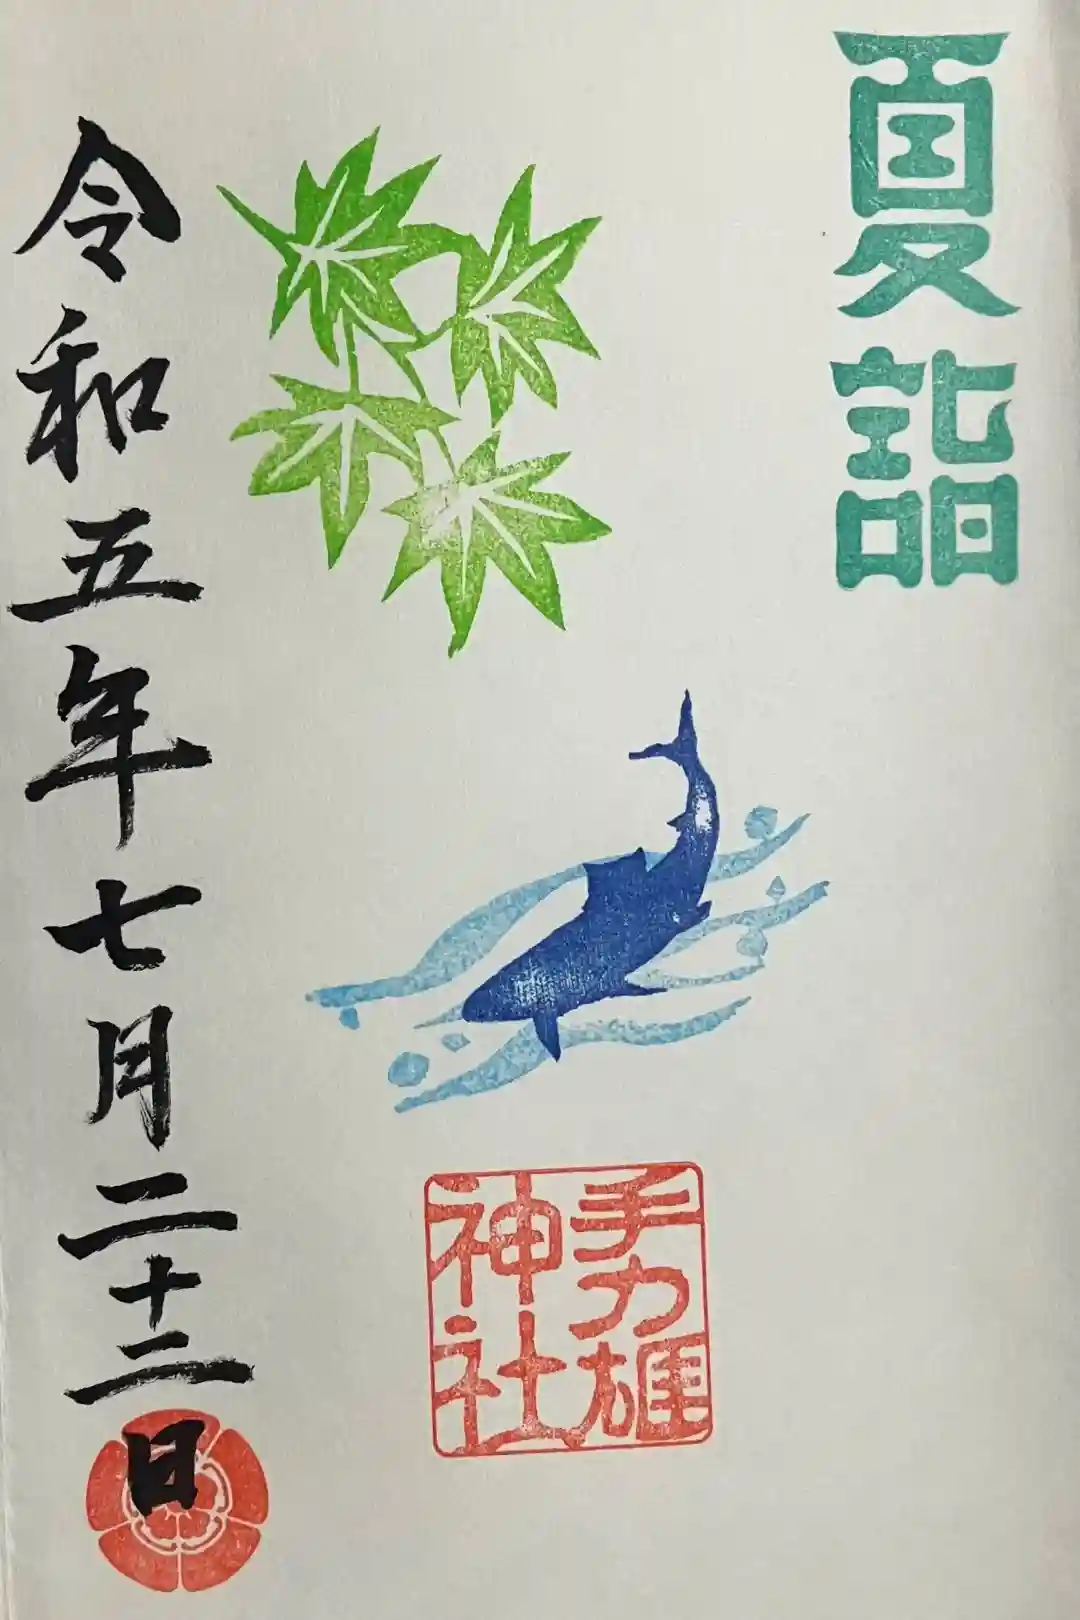 夏詣
手力雄
神社
令和五年七月二十二日